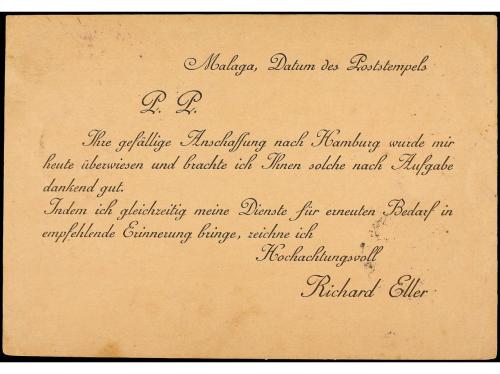 Malaga, Datum des Poststempels
P. P.
Ihre gefällige Anschaffung nach Hamburg wurde mir
heute überwiesen und brachte ich Ihnen solche nach Aufgabe
dankend gut.
Indem ich gleichzeitig meine Dienste für erneuten Bedarf in
empfehlende Erinnerung bringe, zeichne ich
Hochachtungsvoll
Richard Eller